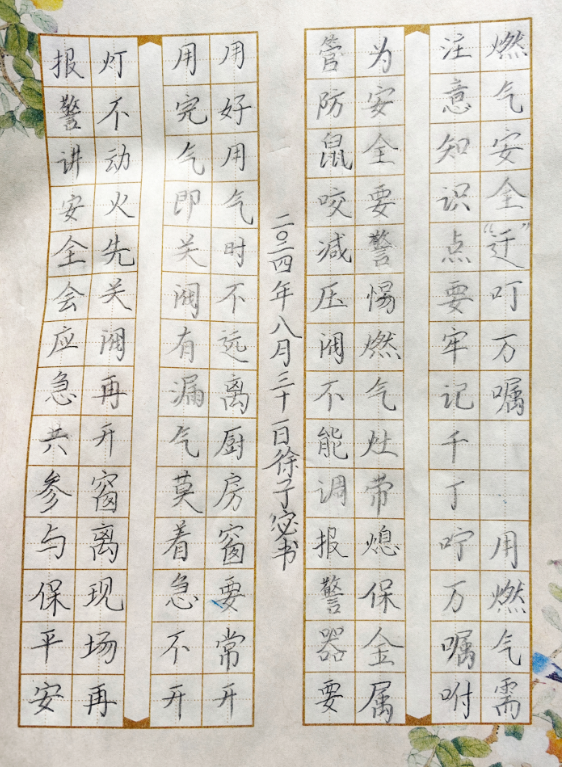 燃气安全“迁”叮万嘱 用燃气需
注意知识点要牢记千丁咛万嘱咐
为安全要警惕燃气灶带熄保金属
管防鼠咬减压阀不能调报警器要
二〇二四年八月三十一日徐子书
用好用气时不远离厨房窗要常开
用完气即关阀有漏气莫着急不开
灯不动火先关阀再开窗离现场再
报警讲安全会应急共参与保平安